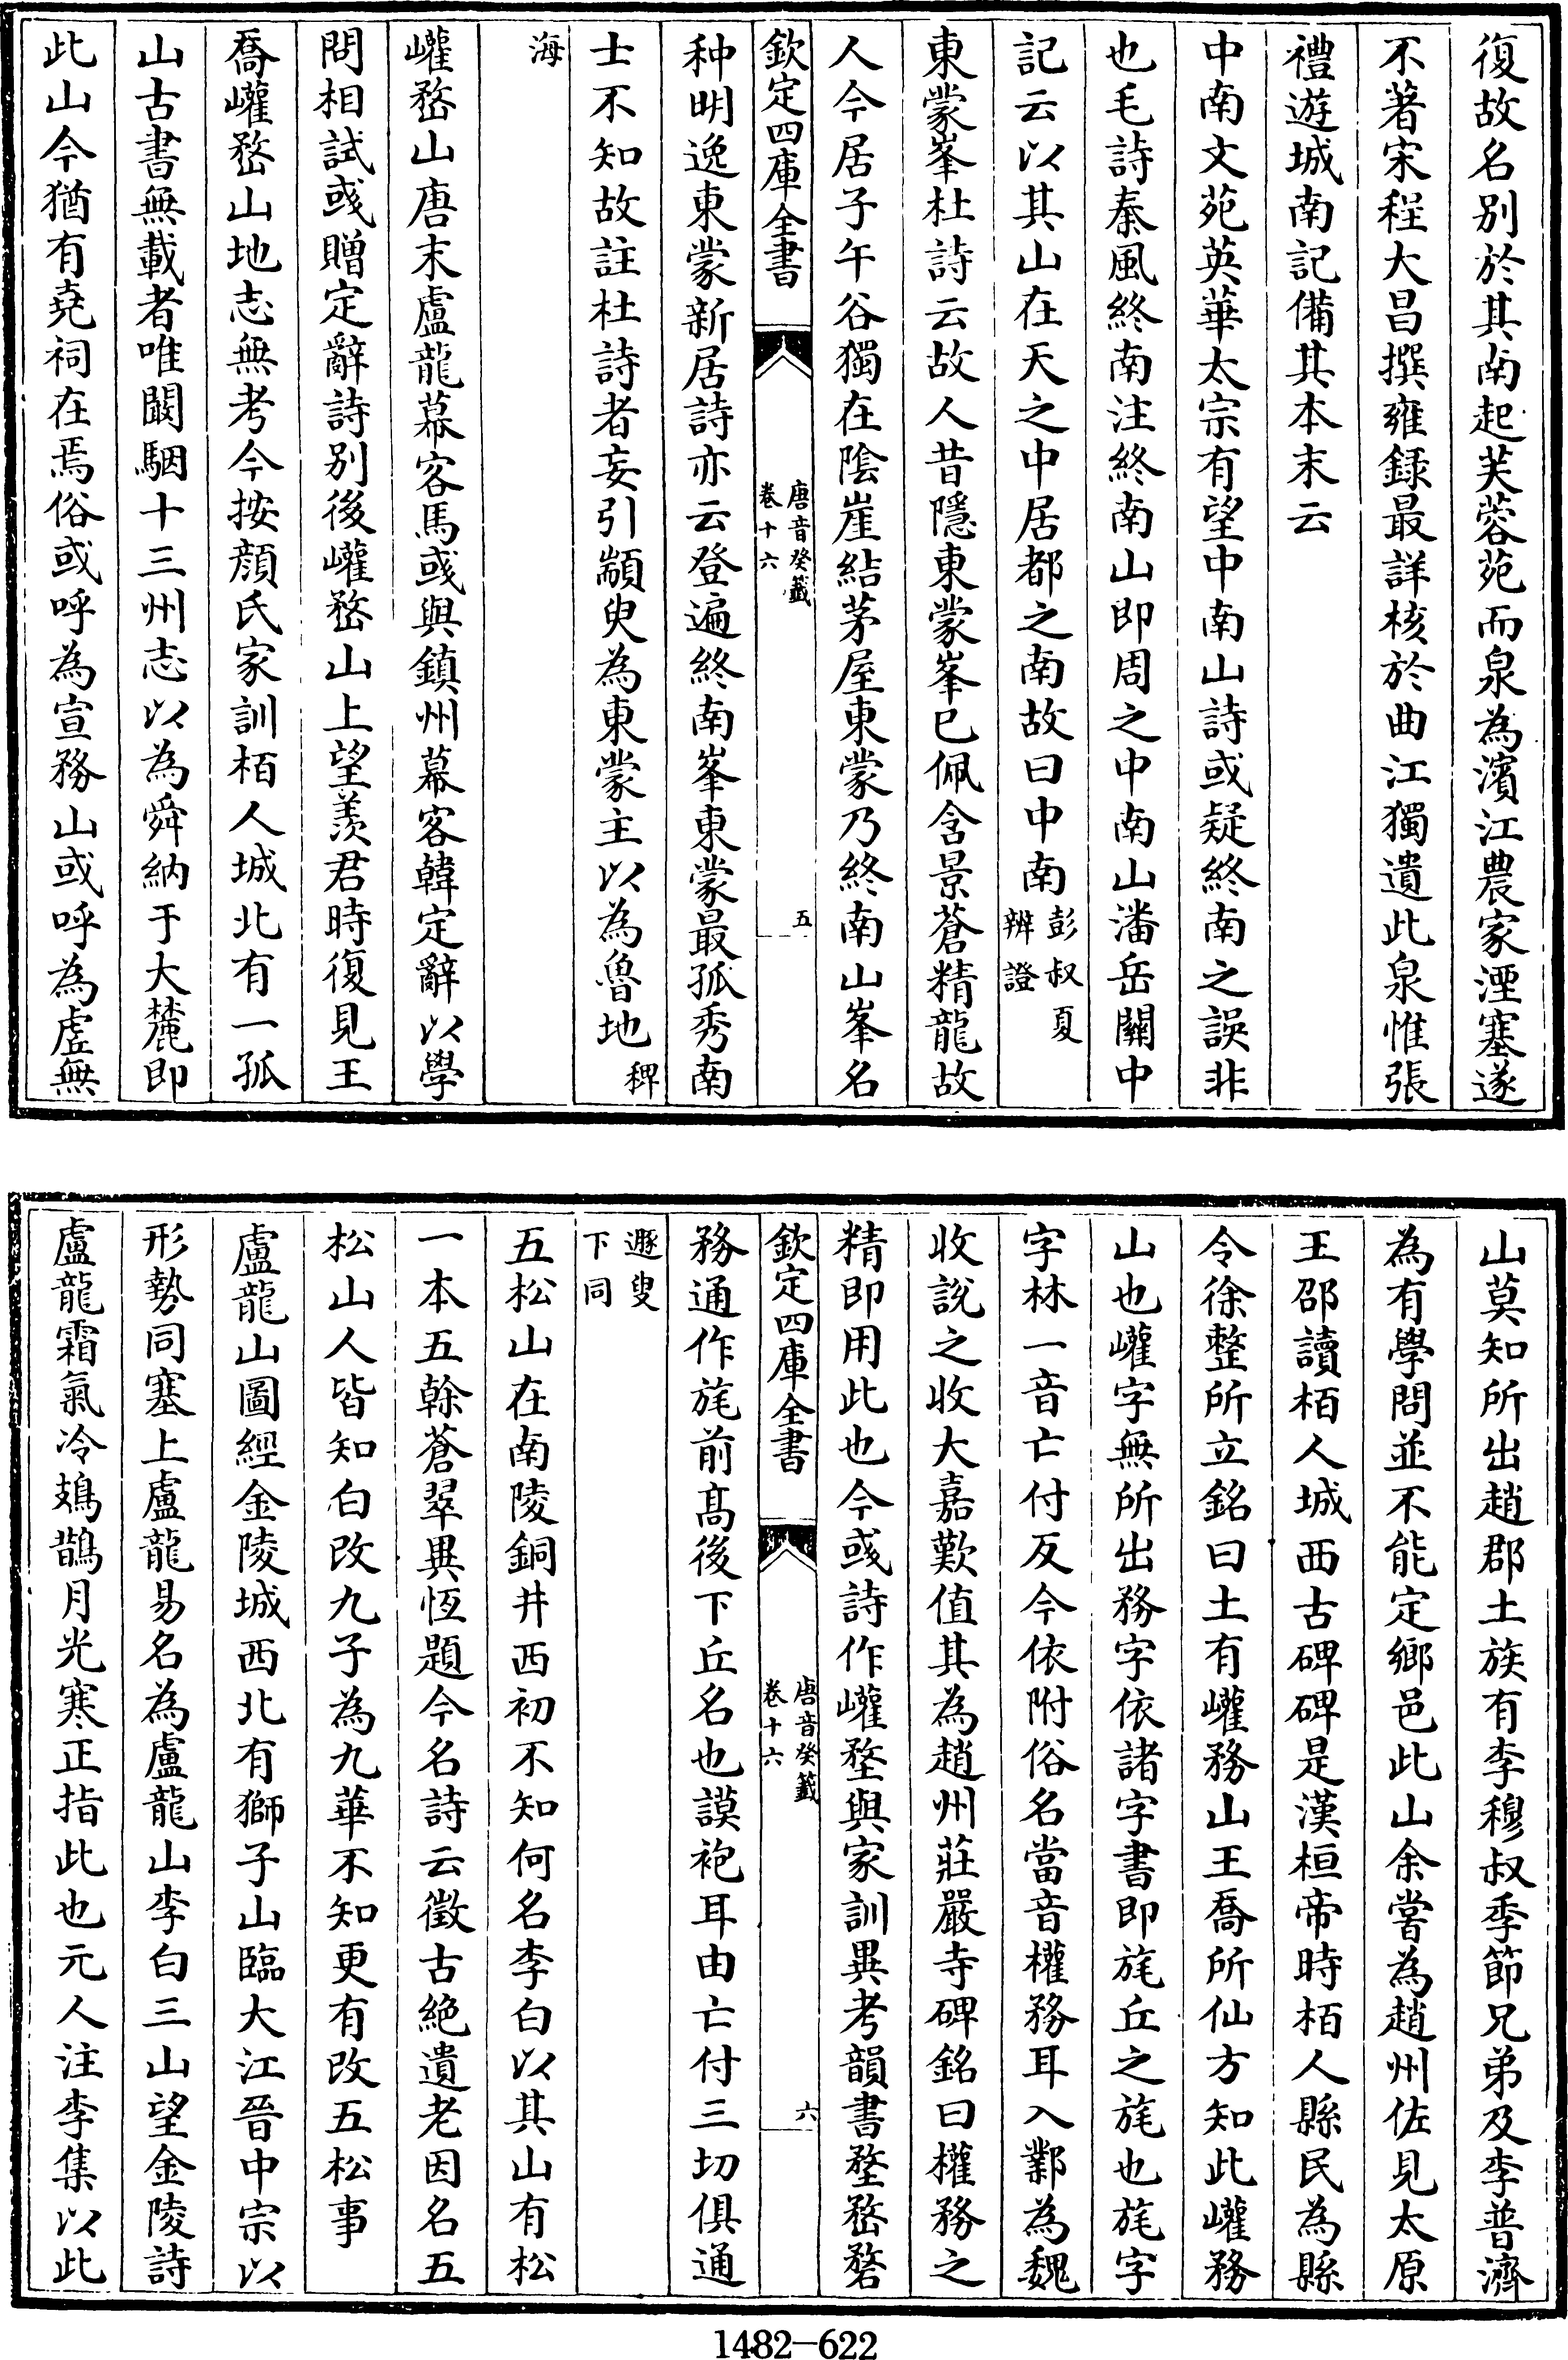 復故名别於其南起芙蓉苑而泉為濱江農家湮塞遂
不著宋程大昌撰雍録最詳核於曲江獨遺此泉惟張
禮遊城南記備其本末云
中南文苑英華太宗有望中南山詩或疑終南之誤非
也毛詩秦風終南注終南山即周之中南山潘岳關中
記云以其山在天之中居都之南故曰中南彭叔夏
辨證
東蒙峯杜詩云故人昔隱東蒙峯已佩含景蒼精龍故
人今居子午谷獨在陰崖結茅屋東蒙乃終南山峯名
欽定四庫全書
唐音癸籖
卷十六
五
种明逸東蒙新居詩亦云登遍終南峯東蒙最孤秀南
士不知故註杜詩者妄引顓臾為東蒙主以為魯地稗
海
巏嵍山唐末盧龍幕客馬彧與鎮州幕客韓定辭以學
問相試彧贈定辭詩别後巏嵍山上望羨君時復見王
喬巏嵍山地志無考今按顔氏家訓栢人城北有一孤
山古書無載者唯闞駰十三州志以為舜納于大麓即
此山今猶有堯祠在焉俗或呼為宣務山或呼為虚無
山莫知所出趙郡土族有李穆叔季節兄弟及李普濟
為有學問並不能定鄉邑此山余嘗為趙州佐見太原
王邵讀栢人城西古碑碑是漢桓帝時栢人縣民為縣
令徐整所立銘曰土有巏務山王喬所仙方知此巏務
山也巏字無所出務字依諸字書即旄丘之旄也旄字
字林一音亡付反今依附俗名當音權務耳入鄴為魏
收說之收大嘉歎值其為趙州莊嚴寺碑銘曰權務之
精即用此也今彧詩作巏堥與家訓異考韻書堥嵍嵍
欽定四庫全書
唐音癸籖
卷十六
六
務通作旄前髙後下丘名也謨袍耳由亡付三切俱通
遯叟
下同
五松山在南陵銅井西初不知何名李白以其山有松
一本五榦蒼翠異恆題今名詩云徵古絶遺老因名五
松山人皆知白改九子為九華不知更有改五松事
盧龍山圖經金陵城西北有獅子山臨大江晉中宗以
形勢同塞上盧龍易名為盧龍山李白三山望金陵詩
盧龍霜氣冷鳷鵲月光寒正指此也元人注李集以此
1482-622